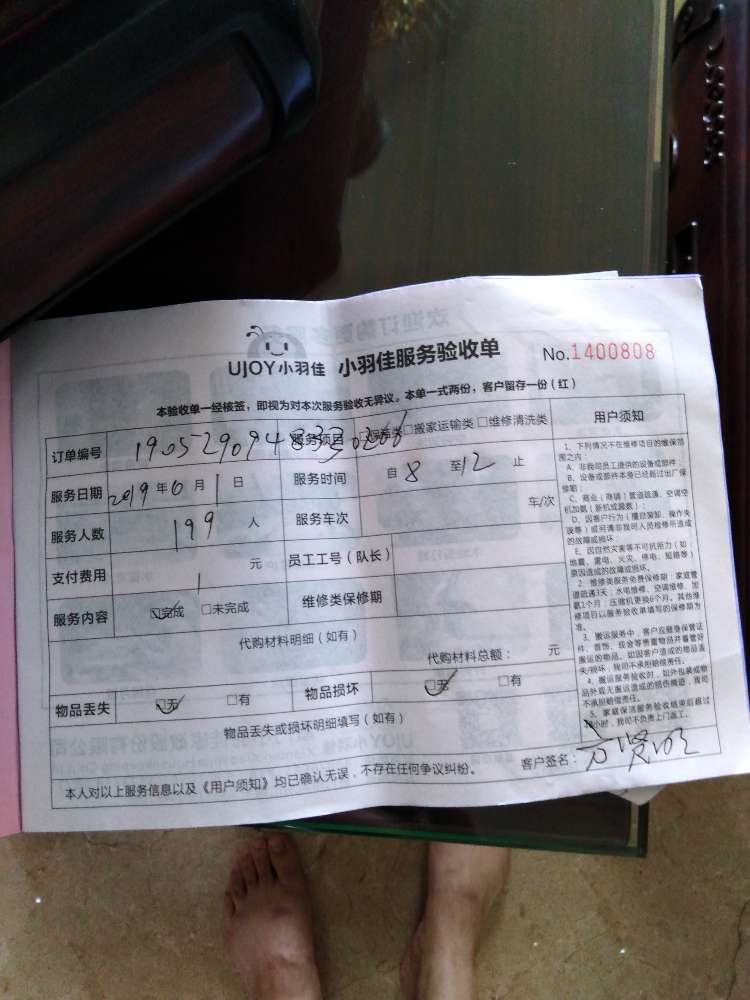 UJOY小羽佳 小羽佳服务验收单 No.1400808
本验收单一经核签，即视为对本次服务验收无异议。本单一式两份，客户留存一份（红）
订单编号 服务项目 保洁类□搬家运输类□维修清洗类 用户须知
服务日期 2019年6月1日 服务时间 自8至12止
服务人数 199人 服务车次 车/次
支付费用 1元 员工工号（队长）
服务内容 ☑完成 □未完成 维修类保修期
代购材料明细（如有）
代购材料总额： 元
物品丢失 ☑无 □有 物品损坏 ☑无 □有
物品丢失或损坏明细填写（如有）
本人对以上服务信息以及《用户须知》均已确认无误，不存在任何争议纠纷。 客户签名：
1、下列情况不在维修项目的维保范围之内：
A、非我司员工提供的设备或部件；
B、设备或部件本身已经超过出厂保修期；
C、商业（商铺）管道疏通、空调空机加氨（新机或漏氨）；
D、因客户行为（擅自装卸、操作失误等）或另请非我司人员维修所造成的故障或损坏。
E、因自然灾害等不可抗拒力（如：地震、雷电、火灾、停电、短路等）原因造成的故障或损坏。
2、维修类服务免费保修期：家庭管道疏通3天；水电维修、空调维修、加氨1个月；压缩机更换6个月。其他维修项目以服务验收单填写的保修期为准。
3、搬运服务中，客户应随身保管证件、首饰、现金等贵重物品并看管好搬运的物品，如因客户造成的物品丢失/损坏，我司不承担赔偿责任。
4、搬运服务验收时，如外包装或物品外观无搬运造成的损伤痕迹，我司不承担赔偿责任。
5、家庭保洁服务验收结束后超过
小时，我司不负责上门返工。